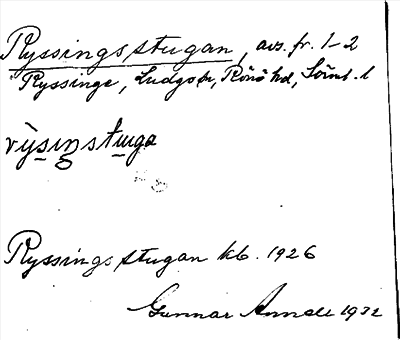 Ryssingsstugan, avs. fr. 1-2
Ryssinge, Ludgo sn, Rönö hd, Söml. l
rỳsiŋstuga
Ryssingsstugan kb. 1926
Gunnar Annell 1932